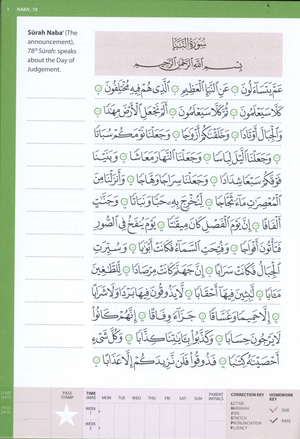 1 NABA', 78
Sūrah Naba' (The
announcement),
78th Sūrah: speaks
about the Day of
Judgement.
سُورَةُ النَّبَإِ
بِسْمِ اللَّهِ الرَّحْمَٰنِ الرَّحِيمِ
عَمَّ يَتَسَاءَلُونَ عَنِ النَّبَإِ الْعَظِيمِ الَّذِي هُمْ فِيهِ مُخْتَلِفُونَ
كَلَّا سَيَعْلَمُونَ ثُمَّ كَلَّا سَيَعْلَمُونَ أَلَمْ نَجْعَلِ الْأَرْضَ مِهَادًا
وَالْجِبَالَ أَوْتَادًا وَخَلَقْنَاكُمْ أَزْوَاجًا وَجَعَلْنَا نَوْمَكُمْ سُبَاتًا
وَجَعَلْنَا اللَّيْلَ لِبَاسًا وَجَعَلْنَا النَّهَارَ مَعَاشًا وَبَنَيْنَا
فَوْقَكُمْ سَبْعًا شِدَادًا وَجَعَلْنَا سِرَاجًا وَهَّاجًا وَأَنْزَلْنَا مِنَ
الْمُعْصِرَاتِ مَاءً ثَجَّاجًا لِنُخْرِجَ بِهِ حَبًّا وَنَبَاتًا وَجَنَّاتٍ
أَلْفَافًا إِنَّ يَوْمَ الْفَصْلِ كَانَ مِيقَاتًا يَوْمَ يُنْفَخُ فِي الصُّورِ
فَتَأْتُونَ أَفْوَاجًا وَفُتِحَتِ السَّمَاءُ فَكَانَتْ أَبْوَابًا وَسُيِّرَتِ
الْجِبَالُ فَكَانَتْ سَرَابًا إِنَّ جَهَنَّمَ كَانَتْ مِرْصَادًا لِلطَّاغِينَ
مَآبًا لَابِثِينَ فِيهَا أَحْقَابًا لَا يَذُوقُونَ فِيهَا بَرْدًا وَلَا شَرَابًا
إِلَّا حَمِيمًا وَغَسَّاقًا جَزَاءً وِفَاقًا إِنَّهُمْ كَانُوا
لَا يَرْجُونَ حِسَابًا وَكَذَّبُوا بِآيَاتِنَا كِذَّابًا وَكُلَّ شَيْءٍ
أَحْصَيْنَاهُ كِتَابًا فَذُوقُوا فَلَنْ نَزِيدَكُمْ إِلَّا عَذَابًا
START DATE
PASS DATE
PASS STAMP
TIME (MIN) MON TUE WED THU FRI SAT SUN PARENT INITIALS
WEEK 1
WEEK 2
CORRECTION KEY HOMEWORK KEY
LETTER
HARAKAH DUE
JOIN
STRETCH PASS
PRONUNCIATION
FLUENCY